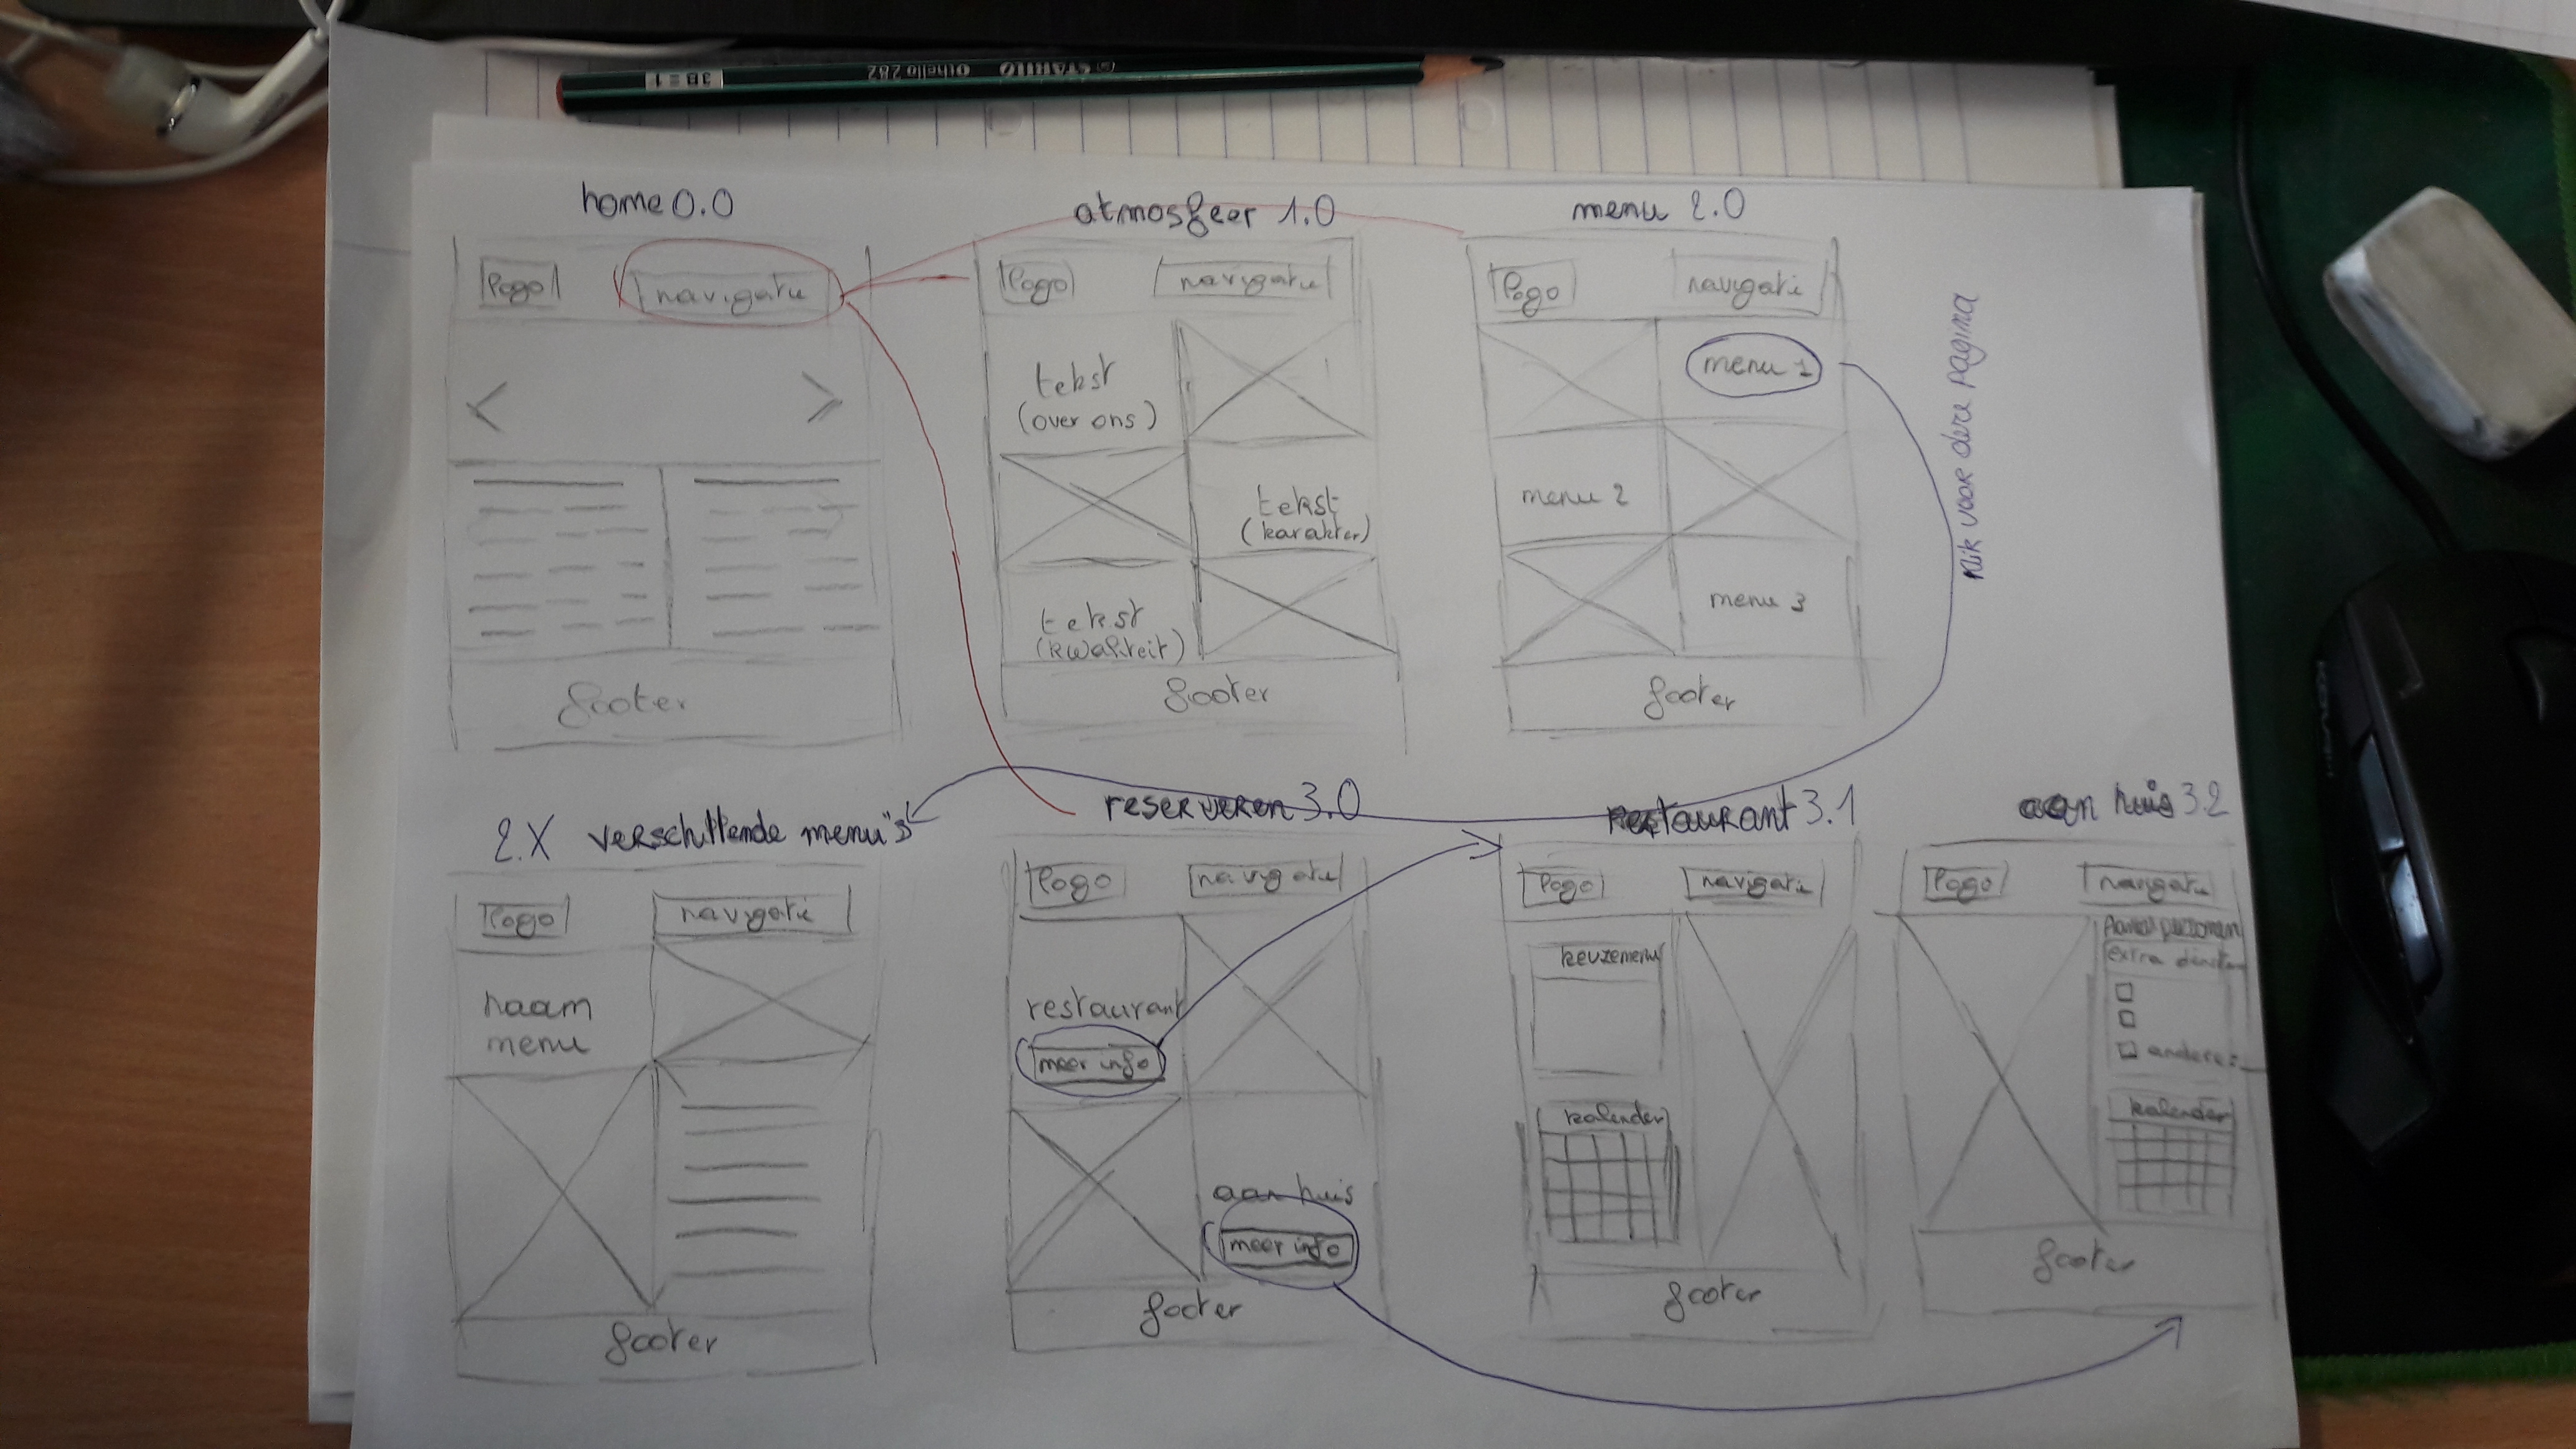 STABILO Othello 282 3B = 1
home 0.0
logo
navigatie
<
>
footer
atmosfeer 1.0
logo
navigatie
tekst
(over ons)
tekst
(karakter)
tekst
(kwaliteit)
footer
menu 2.0
logo
navigatie
menu 1
menu 2
menu 3
footer
klik voor deze pagina
2.X verschillende menu's
logo
navigatie
naam
menu
footer
reserveren 3.0
logo
navigatie
restaurant
meer info
aan huis
meer info
footer
restaurant 3.1
logo
navigatie
keuzemenu
kalender
footer
aan huis 3.2
logo
navigatie
Aantal personen
extra diensten
andere:
kalender
footer